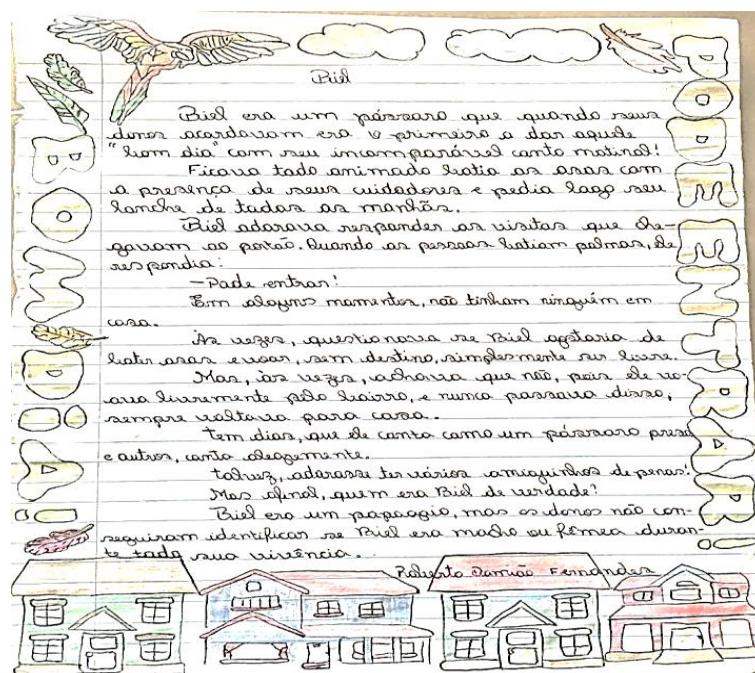 Biel
Biel era um pássaro que quando seus
donos acordavam era o primeiro a dar aquele
"bom dia" com seu incomparável canto matinal!
Ficava todo animado batia as asas com
a presença de seus cuidadores e pedia logo seu
lanche de todas as manhãs.
Biel adorava responder as visitas que che-
gavam ao portão. Quando as pessoas batiam palmas, ele
respondia:
-Pode entrar!
Em alguns momentos, não tinham ninguém em
casa.
Às vezes, questionava se Biel gostaria de
bater asas e voar, sem destino, simplesmente ser livre.
Mas, às vezes, achava que não, pois ele vo-
ava livremente pelo bairro, e nunca passava disso,
sempre voltava para casa.
Tem dias, que ele canta como um pássaro preso
e outros, canta alegremente.
Talvez, adorasse ter vários amiguinhos de penas!
Mas afinal, quem era Biel de verdade?
Biel era um papagio, mas os donos não con-
seguiram identificar se Biel era macho ou fêmea duran-
te toda sua vivência...
Roberto Damião Fernandes
BOM DIA!
PODE ENTRAR!